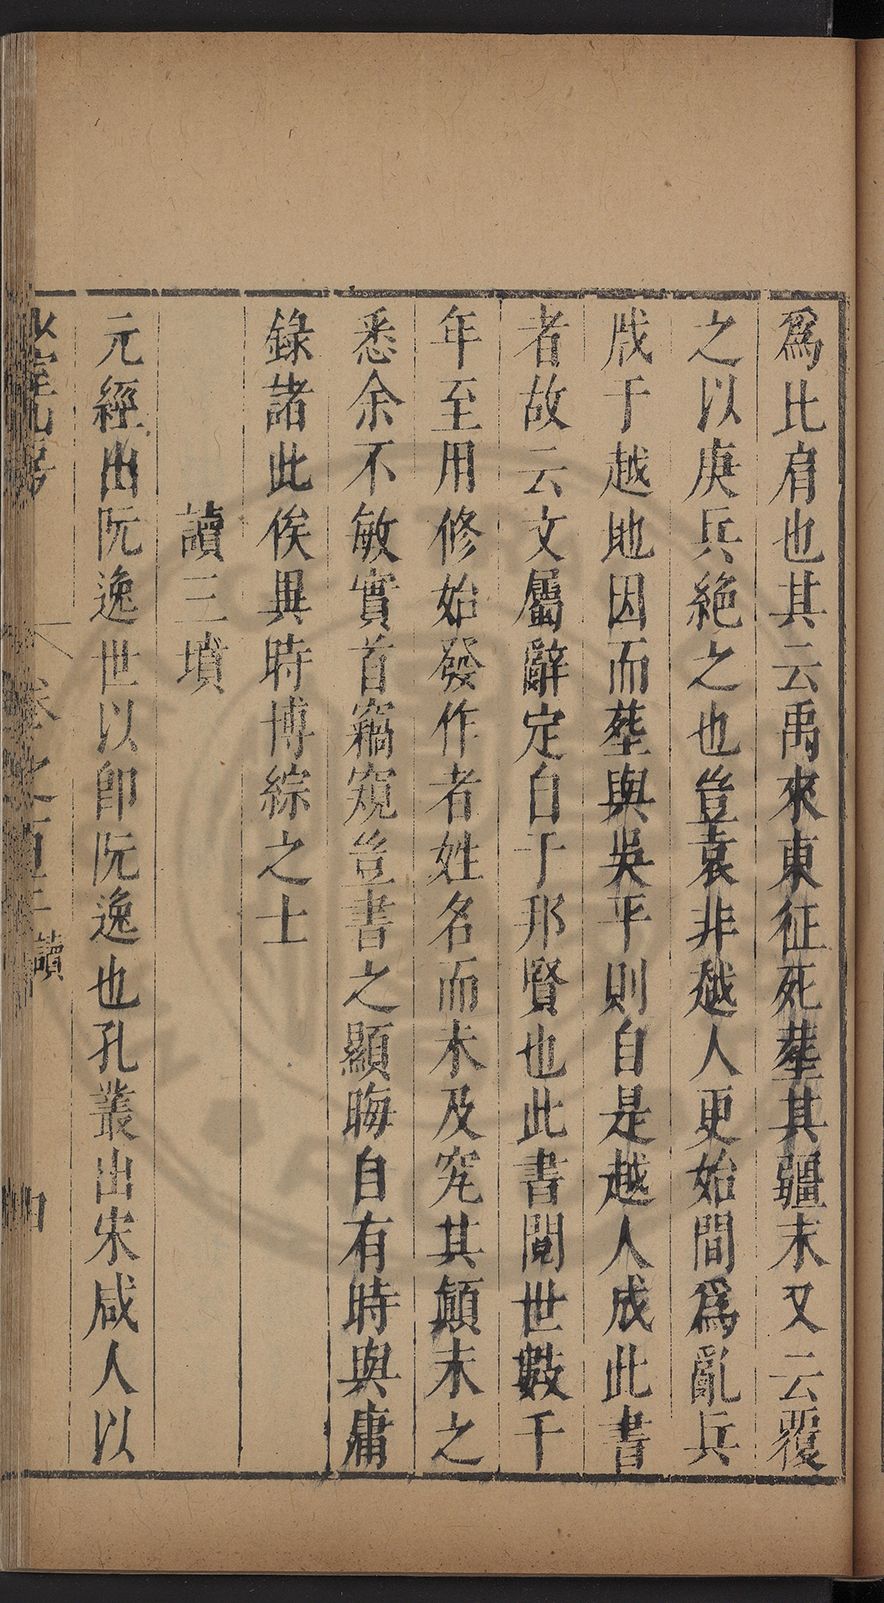 爲比肩也其云禹來東征死葬其疆末又云覆
之以庚兵絶之也豈袁非越人更始間爲亂兵
戕于越地因而葬與吳平則自是越人成此書
者故云文屬辭定自于邦賢也此書閱世數千
年至用修始發作者姓名而未及究其顛末之
悉余不敏實首竊窺豈書之顯晦自有時與庸
錄諸此俟異時博綜之士
讀三墳
元經出阮逸世以即阮逸也孔叢出宋咸人以
讀